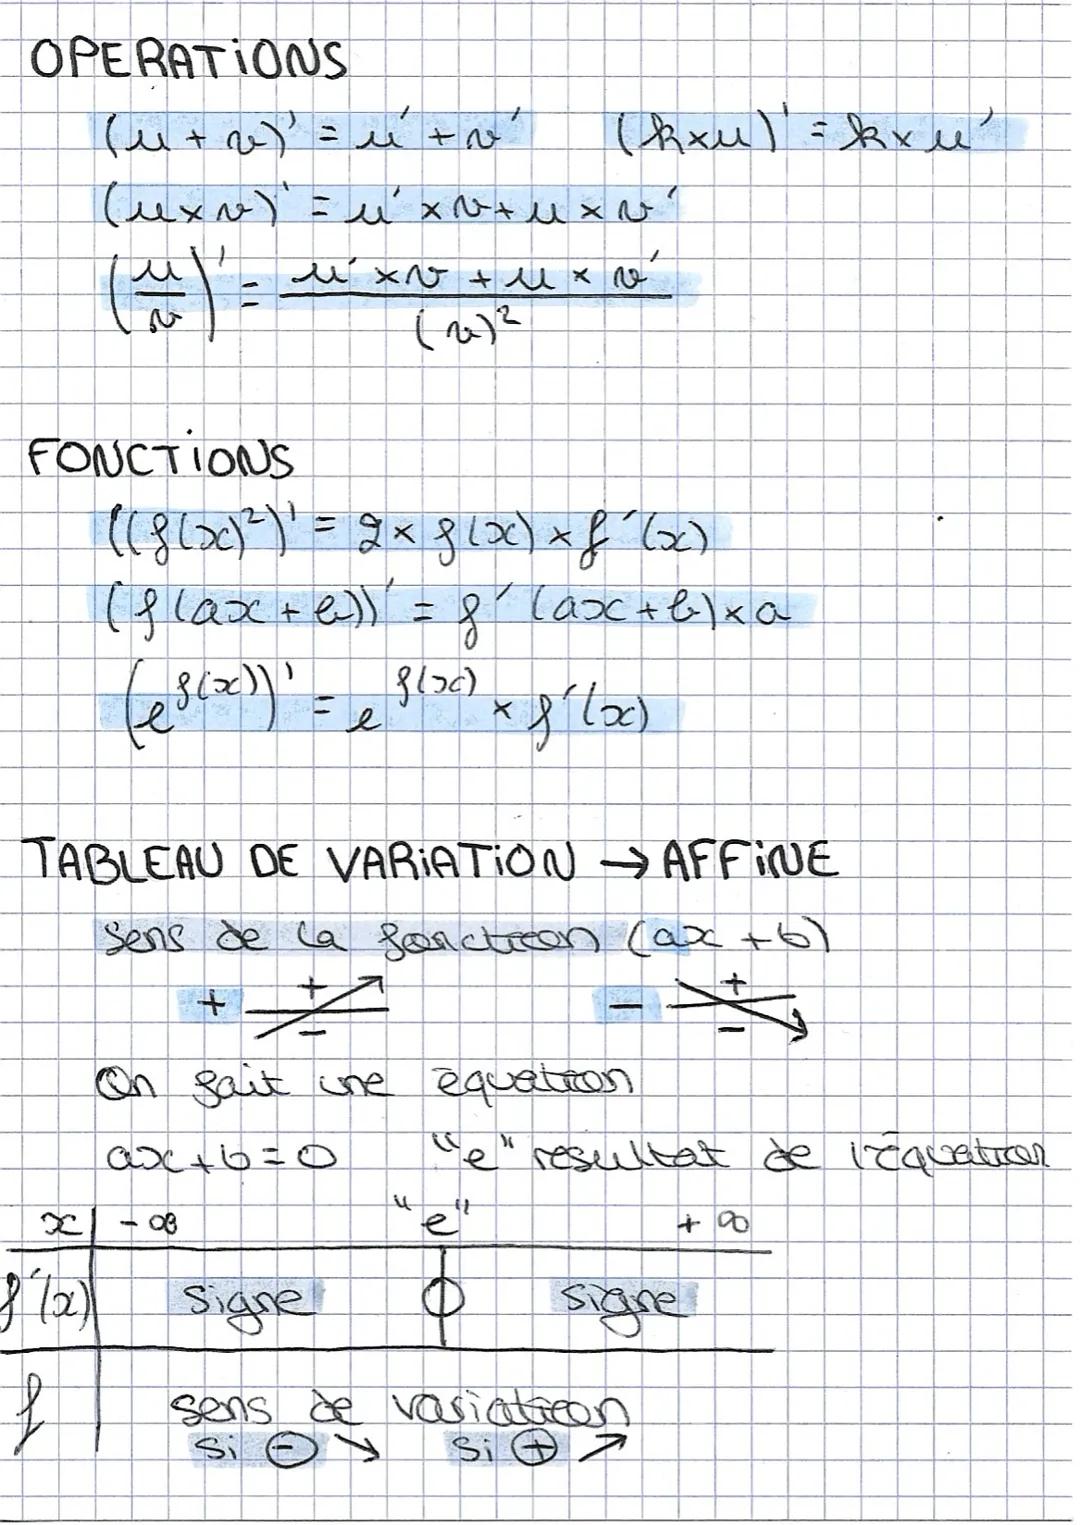 OPERATIONS
(u + v)' = u' + v' (k×u)' = k× u'
(u×v)' = u' ×v+u × v'
(u/v)' = (u' ×v + u × v')/(v)²
FONCTIONS
((f(x)²)' = 2× f(x) × f'(x)
(f(ax + b))' = f' (ax+b)×a
(e^f(x))' = e^f(x) × f'(x)
TABLEAU DE VARIATION → AFFINE
sens de la fonction (ax + b)
+ + −
− + −
On fait une équation
ax+b=0 "e" resultat de l'équation
x -∞ "e" +∞
f'(x) signe 0 signe
f sens de variation
si ⊖ ↘ si ⊕ ↗